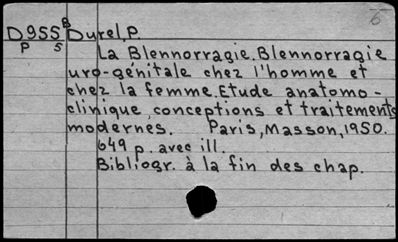 6
D955 B Durel, P.
P 5
La Blennorragie. Blennorragie
uro-génitale chez l'homme et
chez la femme. Etude anatomo-
clinique, conceptions et traitements
modernes. Paris, Masson, 1950.
649 p. avec ill.
Bibliogr. à la fin des chap.